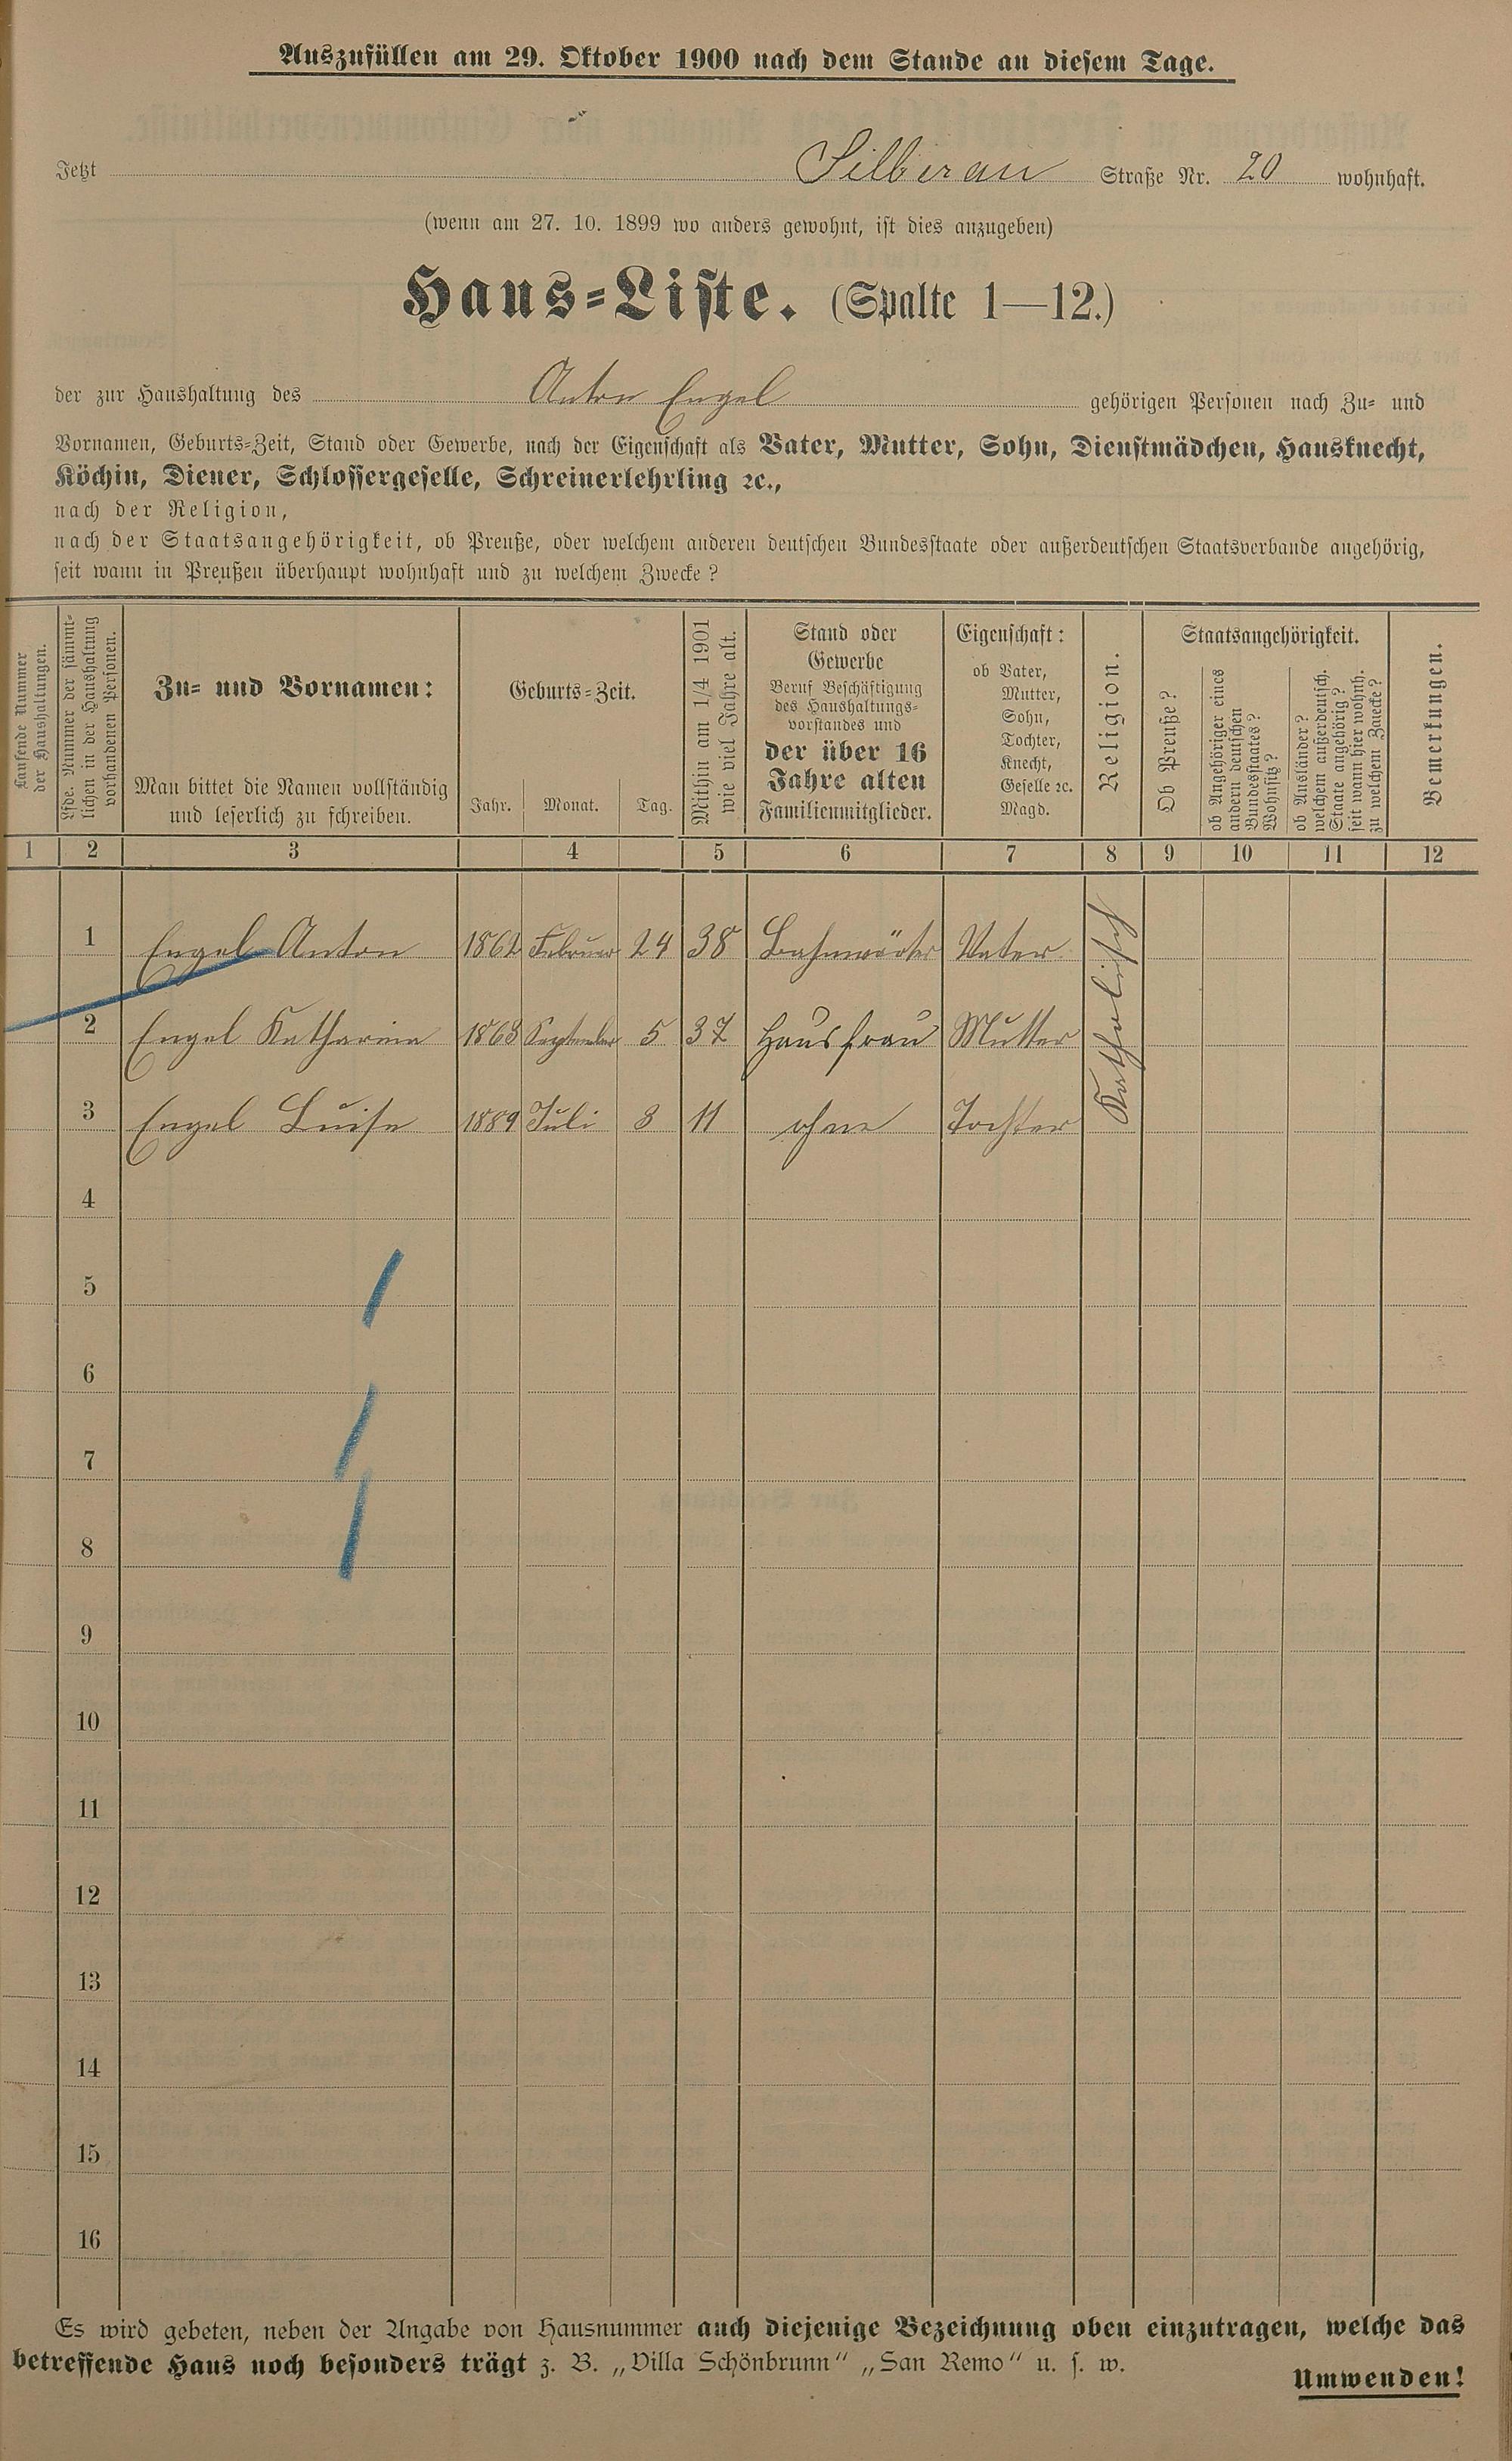 Auszufüllen am 29. Oktober 1900 nach dem Stande an diesem Tage.
Jetzt Silberau Straße Nr. 20 wohnhaft.
(wenn am 27. 10. 1899 wo anders gewohnt, ist dies anzugeben)
Haus-Liste. (Spalte 1—12.)
der zur Haushaltung des Anton Engel gehörigen Personen nach Zu- und
Vornamen, Geburts-Zeit, Stand oder Gewerbe, nach der Eigenschaft als Vater, Mutter, Sohn, Dienstmädchen, Hausknecht,
Köchin, Diener, Schlossergeselle, Schreinerlehrling ꝛc.,
nach der Religion,
nach der Staatsangehörigkeit, ob Preuße, oder welchem anderen deutschen Bundesstaate oder außerdeutschen Staatsverbande angehörig,
seit wann in Preußen überhaupt wohnhaft und zu welchem Zwecke?
Laufende Nummer
der Haushaltungen.
Lfde. Nummer der sämmt-
lichen in der Haushaltung
vorhandenen Personen.
Zu- und Vornamen:
Man bittet die Namen vollständig
und leserlich zu schreiben.
Geburts-Zeit.
Jahr. Monat. Tag.
Mithin am 1/4 1901
wie viel Jahre alt.
Stand oder
Gewerbe
Beruf Beschäftigung
des Haushaltungs-
vorstandes und
der über 16
Jahre alten
Familienmitglieder.
Eigenschaft:
ob Vater,
Mutter,
Sohn,
Tochter,
Knecht,
Geselle ꝛc.
Magd.
Religion.
Staatsangehörigkeit.
Ob Preuße?
ob Angehöriger eines
andern deutschen
Bundesstaates?
Wohnsitz?
ob Ausländer?
welchem außerdeutsch.
Staate angehörig?
seit wann hier wohnh.
zu welchem Zwecke?
Bemerkungen.
1 2 3 4 5 6 7 8 9 10 11 12
1 Engel Anton 1862 Februar 24 38 Bahnwärter Vater
2 Engel Katharina 1863 September 5 37 Hausfrau Mutter
3 Engel Luise 1889 Juli 8 11 ohne Tochter
Katholisch
4
5
6
7
8
9
10
11
12
13
14
15
16
Es wird gebeten, neben der Angabe von Hausnummer auch diejenige Bezeichnung oben einzutragen, welche das
betreffende Haus noch besonders trägt z. B. „Villa Schönbrunn“ „San Remo“ u. s. w.
Umwenden!